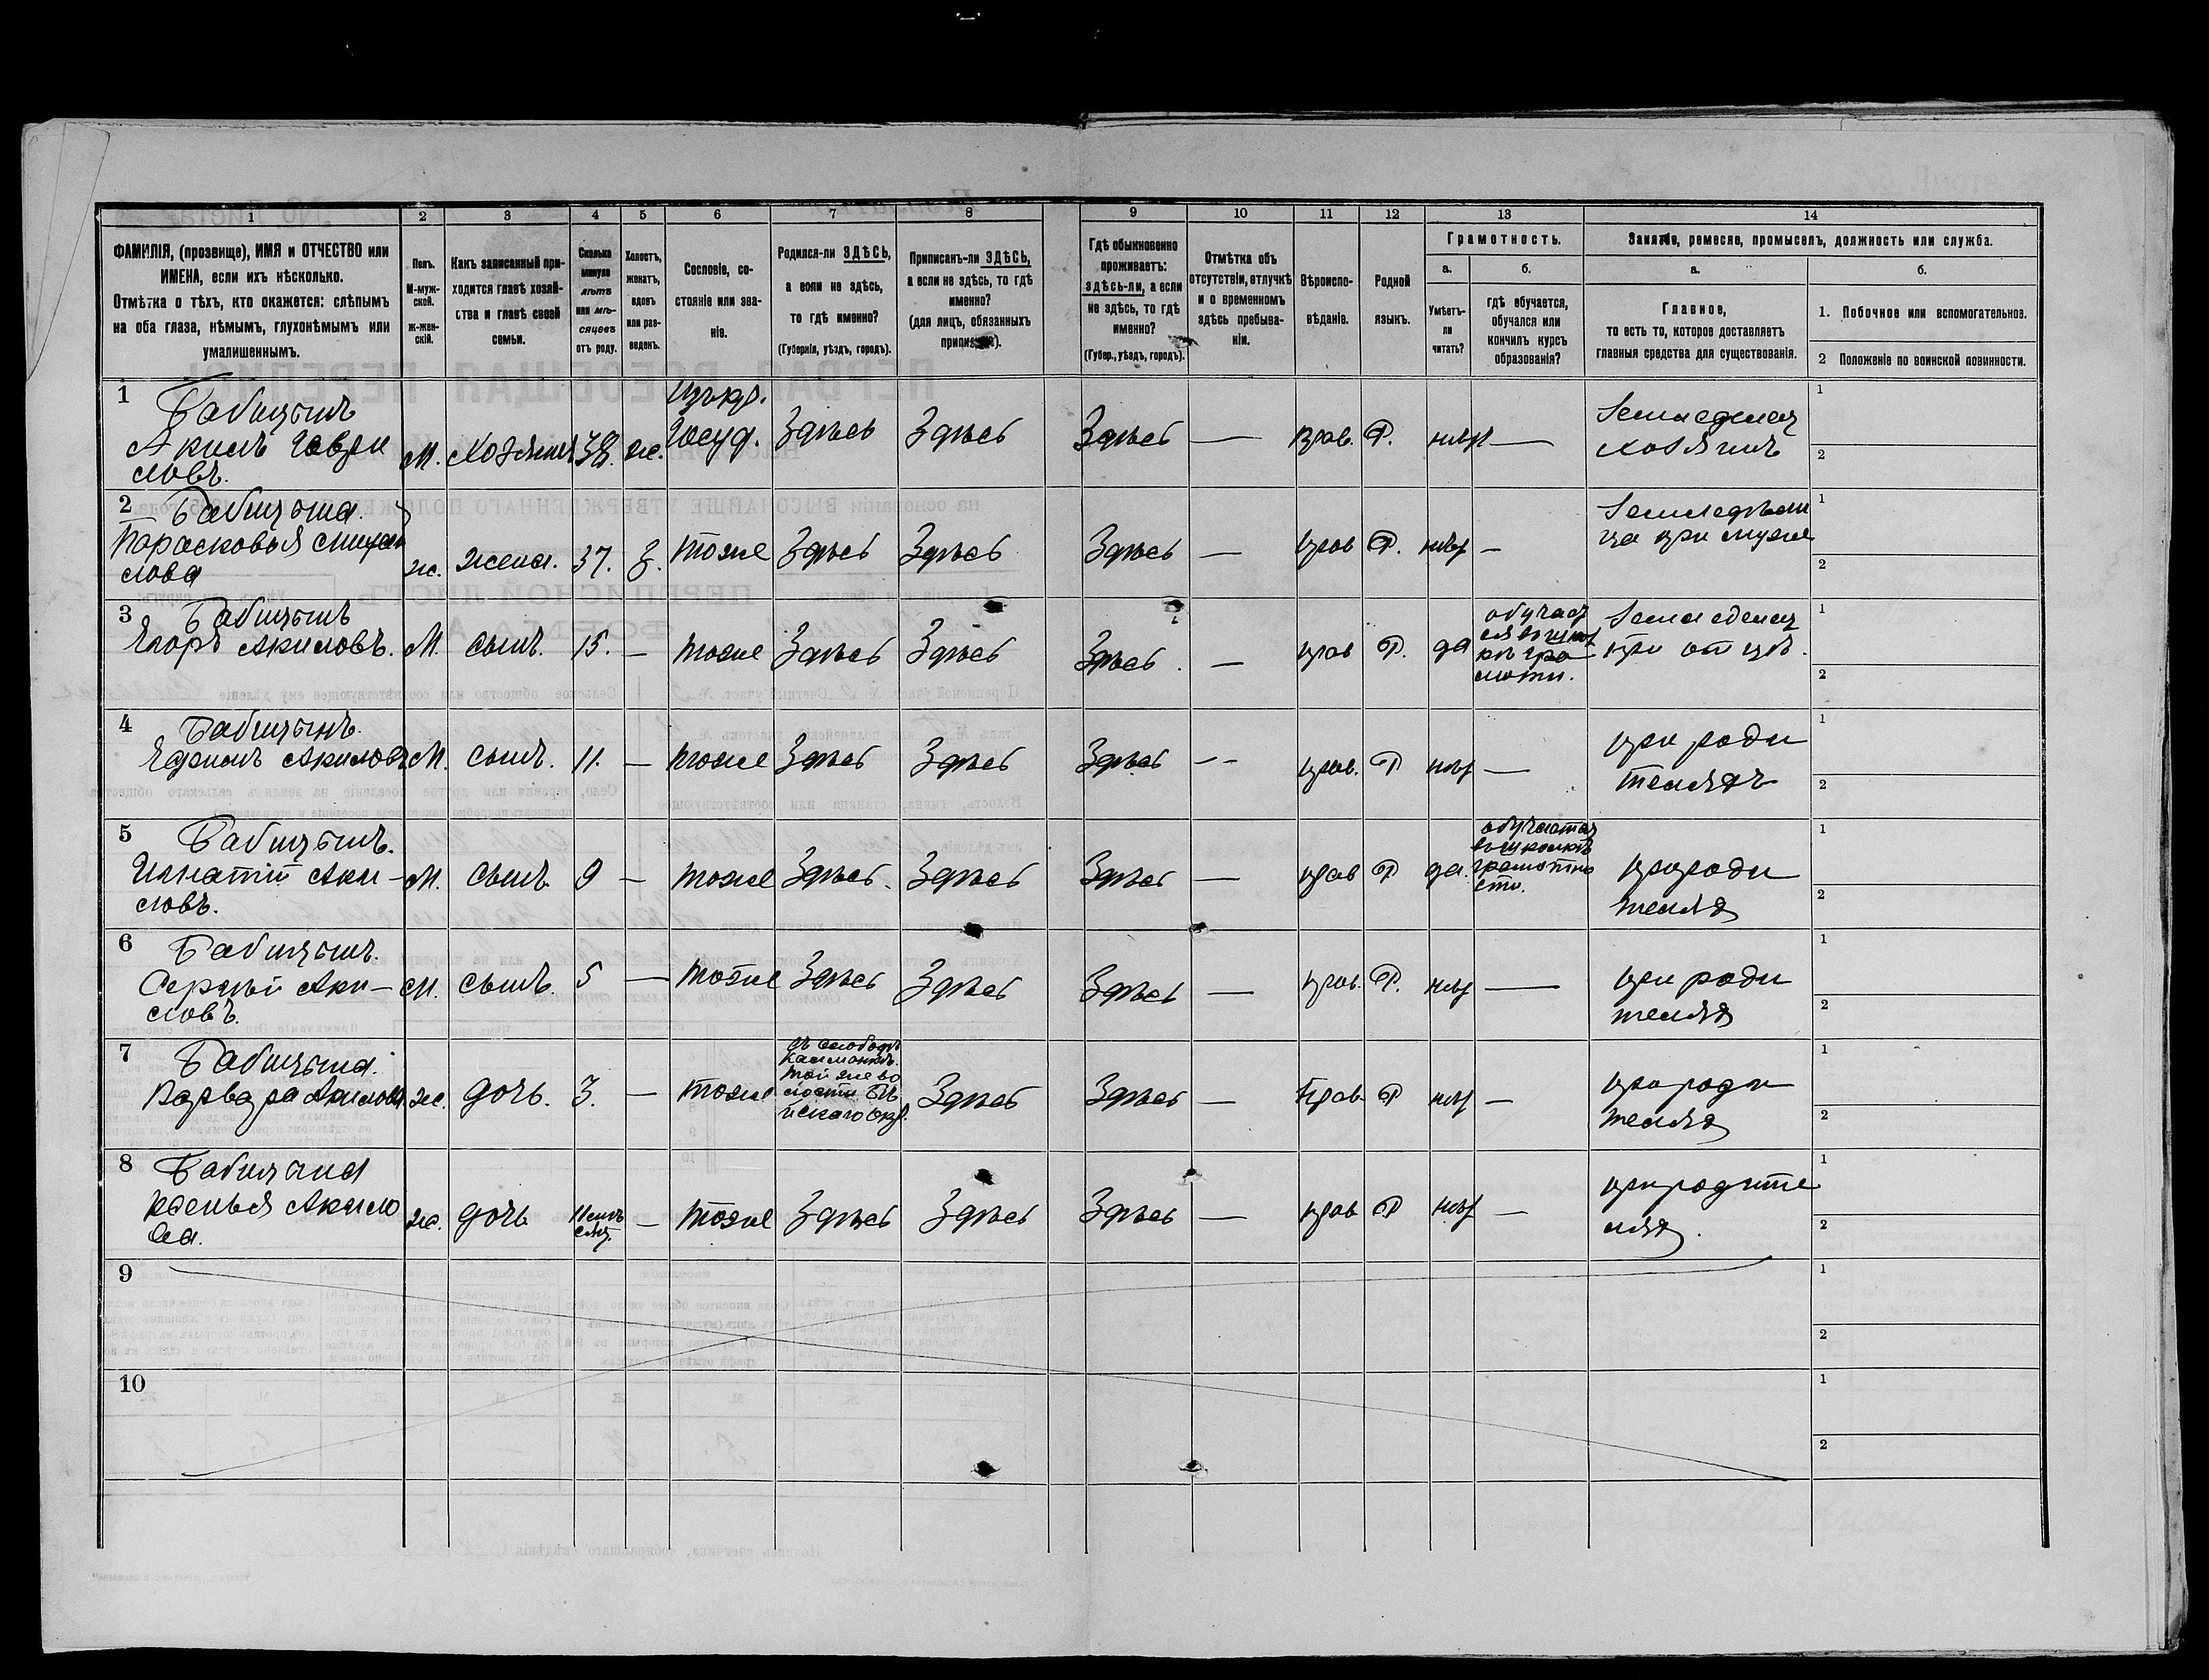 1 2 3 4 5 6 7 8 9 10 11 12 13 14
ФАМИЛІЯ, (прозвище), ИМЯ и ОТЧЕСТВО или
ИМЕНА, если ихъ нѣсколько.
Отмѣтка о тѣхъ, кто окажется: слѣпымъ
на оба глаза, нѣмымъ, глухонѣмымъ или
умалишеннымъ.
Полъ.
М-муж-
ской.
ж-жен-
скій.
Какъ записанный при-
ходится главѣ хозяй-
ства и главѣ своей
семьи.
Сколько
минуло
лѣтъ
или мѣ-
сяцевъ
отъ роду.
Холостъ,
женатъ,
вдовъ
или раз-
веденъ.
Сословіе, со-
стояніе или зва-
ніе.
Родился-ли ЗДѢСЬ,
а если не здѣсь,
то гдѣ именно?
(Губернія, уѣздъ, городъ).
Приписанъ-ли ЗДѢСЬ,
а если не здѣсь, то гдѣ
именно?
(для лицъ, обязанныхъ
припискою).
Гдѣ обыкновенно
проживаетъ:
здѣсь-ли, а если
не здѣсь, то гдѣ
именно?
(Губер., уѣздъ, городъ).
Отмѣтка объ
отсутствіи, отлучкѣ
и о временномъ
здѣсь пребыва-
ніи.
Вѣроиспо-
вѣданіе.
Родной
языкъ.
Грамотность.
а.
Умѣетъ-
ли
читать?
б.
гдѣ обучается,
обучался или
кончилъ курсъ
образованія?
Занятіе, ремесло, промыселъ, должность или служба.
а.
Главное,
то есть то, которое доставляетъ
главныя средства для существованія.
б.
1. Побочное или вспомогательное.
2 Положеніе по воинской повинности.
1
Акимъ Гаври
ловъ.
М. Хозяинъ 38. ж.
Изъ кр.
Госуд. Здѣсь Здѣсь Здѣсь — прав. Р. нѣт —
Земледелец
хозяинъ
1
2
2
Парасковья
лова
ж. жена. 37. З. тоже Здѣсь Здѣсь Здѣсь — прав Р. нѣт —
Земледѣли
ца при муже
1
2
3
Егоръ Акимовъ.
М. сынъ. 15. — тоже Здѣсь Здѣсь Здѣсь. — прав Р. да
обучал
ся въ школ
кѣ гра
моти.
Земледелец
при отцѣ.
1
2
4
Ефимъ Акимовъ
М. сынъ. 11. — тоже Здѣсь Здѣсь Здѣсь — прав. Р нѣт —
при роди
теляхъ
1
2
5
Игнатій Аки-
мовъ.
М. сынъ 9 — тоже Здѣсь. Здѣсь Здѣсь — прав Р да.
обучается
въ школкѣ
грамотно
сти.
при роди
телях
1
2
6
Сергѣй Аки-
мовъ.
М. сынъ. 5 — тоже Здѣсь Здѣсь Здѣсь — прав. Р. нѣт —
при роди
телях
1
2
7
Варвара Акимова
ж. дочь. 3. — тоже
той же во
лости Бі
йскаго окр.
Здѣсь Здѣсь — Прав. Р нѣт —
при роди
телях
1
2
8
Акимо
ва.
ж. дочь 11 мѣ
сяц. — тоже Здѣсь Здѣсь Здѣсь — прав Р нѣт —
при родите
лях.
1
2
9
1
2
10
1
2